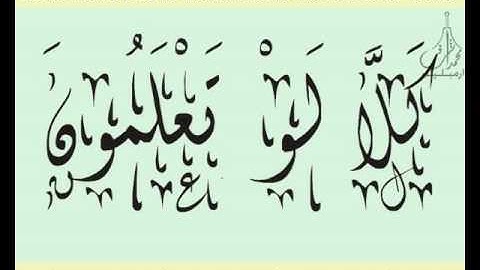 كَلَّا لَوْ تَعْلَمُونَ